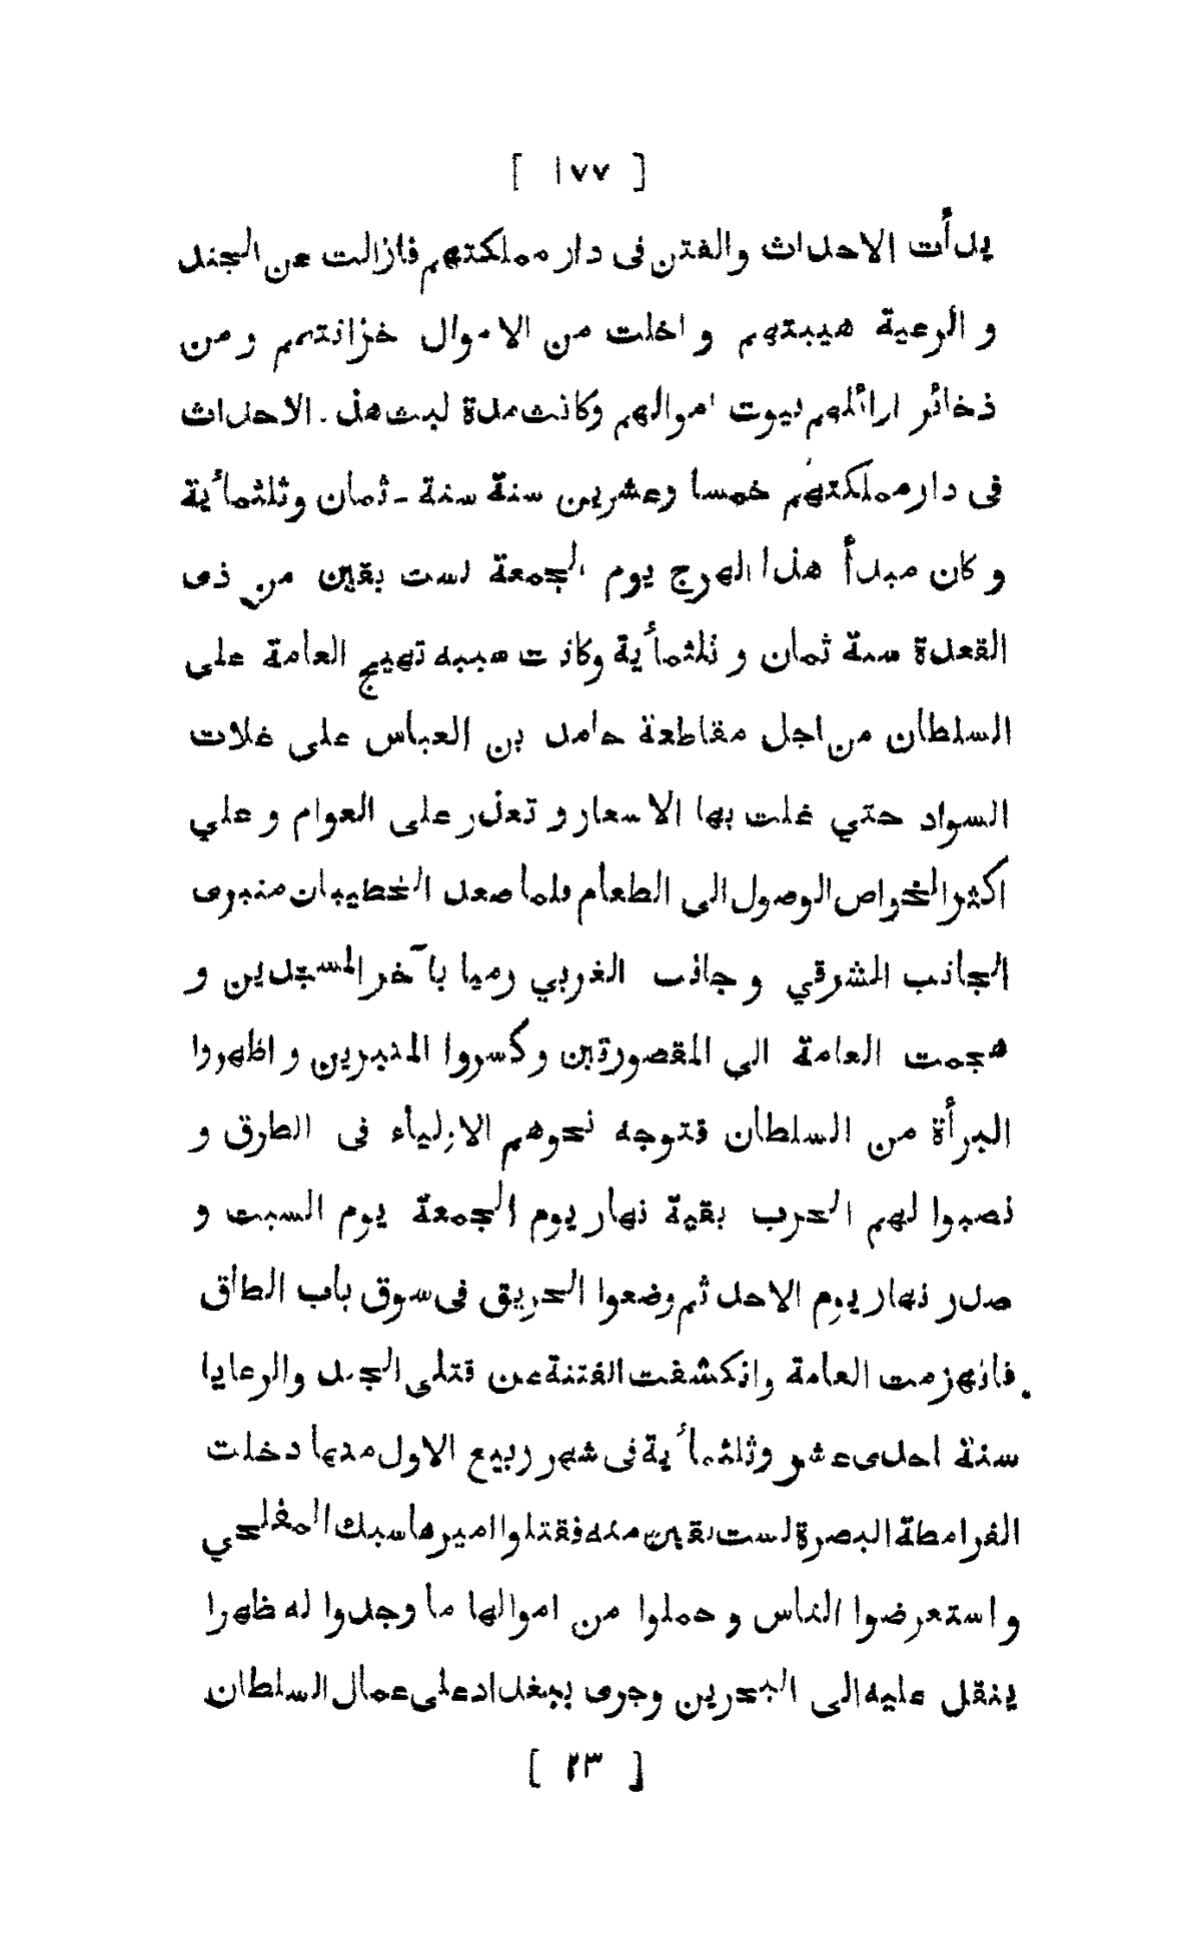 [ ١٧٧ ]
يدأت الاحداث والفتن فى دار مملكتهم فازالت عن الجند
و الرعية هيبتهم و اخلت من الاموال خزانتهم و من
ذخائر ارائلهم بيوت اموالهم وكانت مدة لبث هذه الاحداث
فى دار مملكتهم خمسا وعشرين سنة سنة ـ ثمان وثلثمأية
و كان مبدأ هذا الهرج يوم الجمعة لست بقين من ذى
القعدة سنة ثمان و ثلثمأية وكانت سببه تهيج العامة على
السلطان من اجل مقاطعة حامد بن العباس على غلات
السواد حتي غلت بها الاسعار و تعذر على العوام و علي
اكثر الخواص الوصول الى الطعام فلما صعد الخطيبان منبرى
الجانب المشرقي و جانب الغربي رميا بآخر المسجدين و
هجمت العامة الي المقصورتين و كسروا المنبرين و اظهروا
البرأة من السلطان فتوجه نحوهم الاولياء فى الطرق و
نصبوا لهم الحرب بقية نهار يوم الجمعة يوم السبت و
صدر نهار يوم الاحد ثم وضعوا الحريق فى سوق باب الطاق
فانهزمت العامة وانكشفت الفتنة عن قتلى الجند والرعايا
سنة احدى عشر وثلثمأية فى شهر ربيع الاول منها دخلت
القرامطة البصرة لست بقين منه فقتلوا اميرها سبك المفلحي
و استعرضوا الناس و حملوا من اموالها ما وجدوا له ظهرا
ينقل عليه الى البحرين وجرى ببغداد على عمال السلطان
[ ٢٣ ]